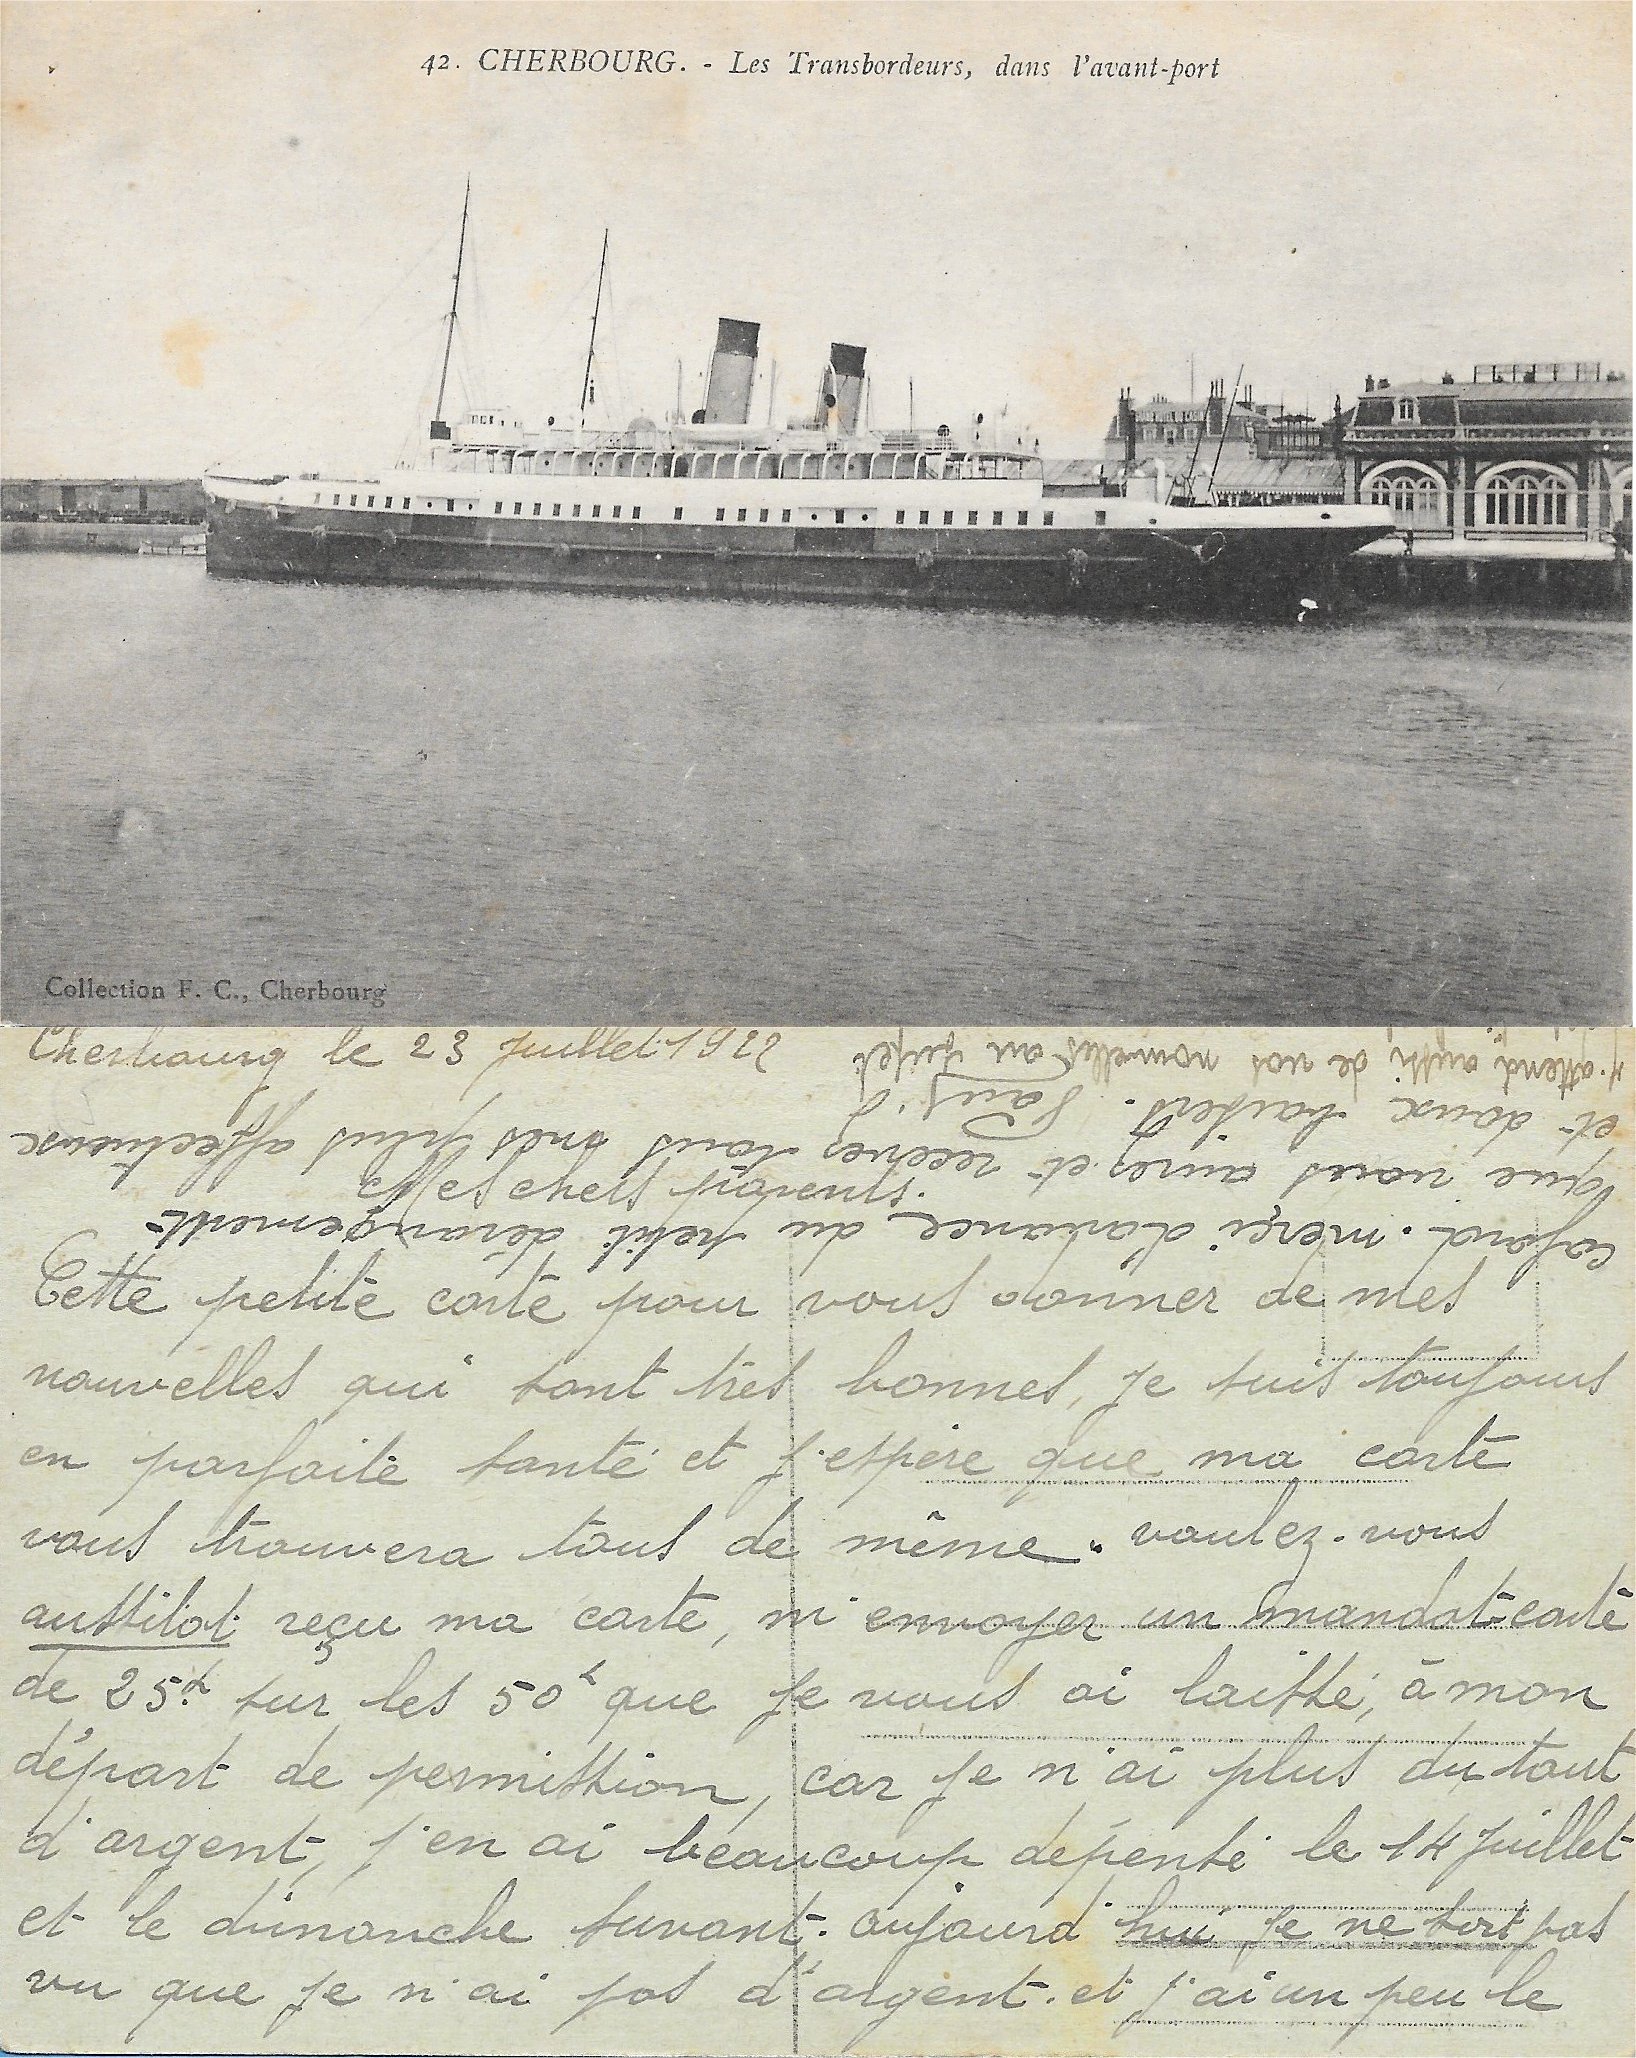 42. CHERBOURG. - Les Transbordeurs, dans l'avant-port
Collection F. C., Cherbourg
Cherbourg le 23 Juillet 1922
Mes chers parents.
Cette petite carte pour vous donner de mes
nouvelles qui sont très bonnes, je suis toujours
en parfaite santé et j'espère que ma carte
vous trouvera tous de même. voulez-vous
aussitot reçu ma carte, m'envoyer un mandat-carte
de 25f. sur les 50f que je vous ai laissé, à mon
départ de permission, car je n'ai plus du tout
d'argent, j'en ai beaucoup dépensé le 14 Juillet
et le dimanche suivant. aujourd'hui je ne sort pas
vu que je n'ai pas d'argent. et j'ai un peu le
cafard. merçi d'avance du petit dérangement
que vous aurez et recevez tous mes plus affectueux
et doux baisers. Paul
j'attend aussi de vos nouvelles au sujet